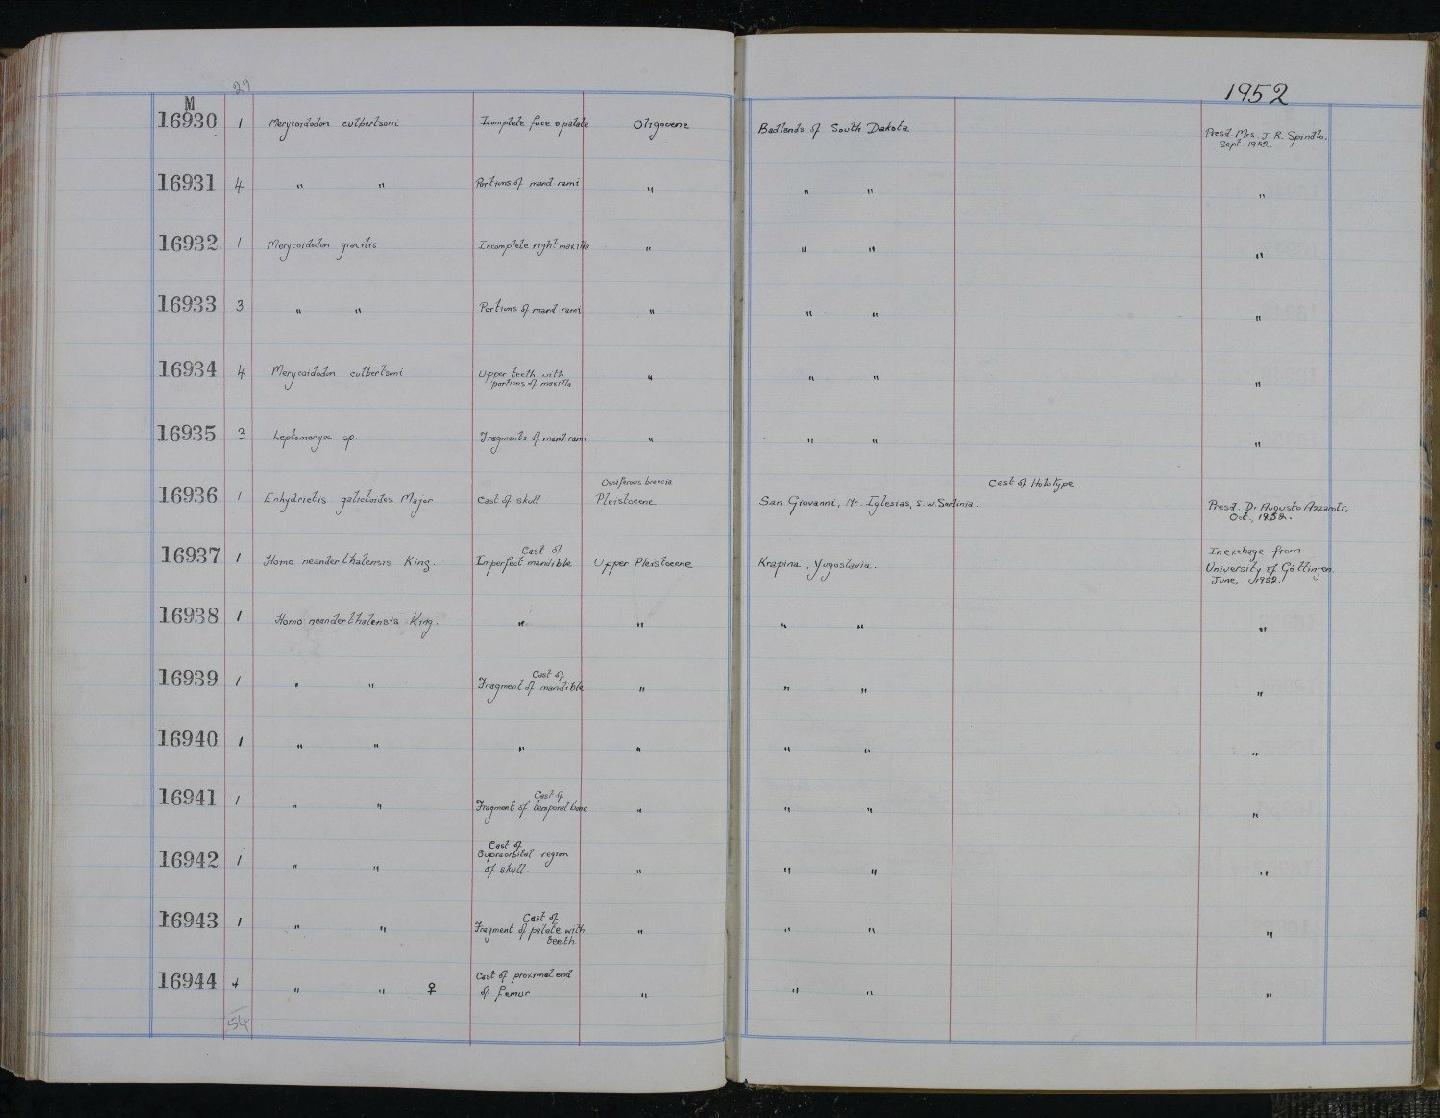 29
1952
M
16930 1 Merycoidodon culbertsoni Incomplete face & palate Oligocene Badlands of South Dakota Presd. Mrs. J. R.
Sept. 1952.
16931 4 " " Portions of mand rami " " " "
16932 1 Merycoidodon gracilis Incomplete right maxilla " " " "
16933 3 " " Portions of mand rami " " " "
16934 4 Merycoidodon culbertsoni Upper teeth with " " " "
portions of maxilla
16935 3 Leptomeryx sp. Fragments of mand rami " " " "
Ossiferous breccia Cast of Holotype
16936 1 Enhydrictis galictoides Major Cast of skull Pleistocene San Giovanni, Nr. Iglesias, S.W. Sardinia. Presd. Dr Augusto
Oct., 1952.
Cast of In exchage from
16937 1 Homo neanderthalensis King. Imperfect mandible Upper Pleistocene Krapina, Yugoslavia. University of Göttingen
June, 1952.
16938 1 Homo neanderthalensis King. " " " " "
Cast of
16939 1 " " Fragment of mandible " " " "
16940 1 " " " " " " "
Cast of
16941 1 " " Fragment of temporal bone " " " "
Cast of
16942 1 " " Supraorbital region " " " "
of skull.
Cast of
16943 1 " " Fragment of palate with " " " "
teeth
Cast of proximal end
16944 4 " " ♀ of femur " " " "
54